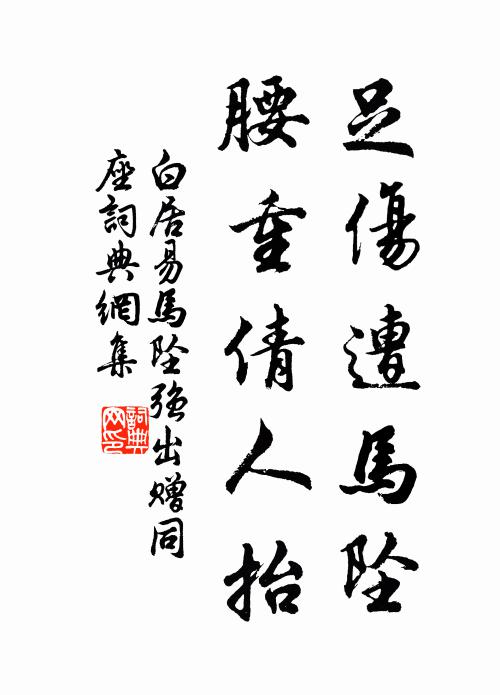 足傷遭馬墜
腰重倩人抬
白居易馬墜強出贈同
座詞典網集
詞典
网印